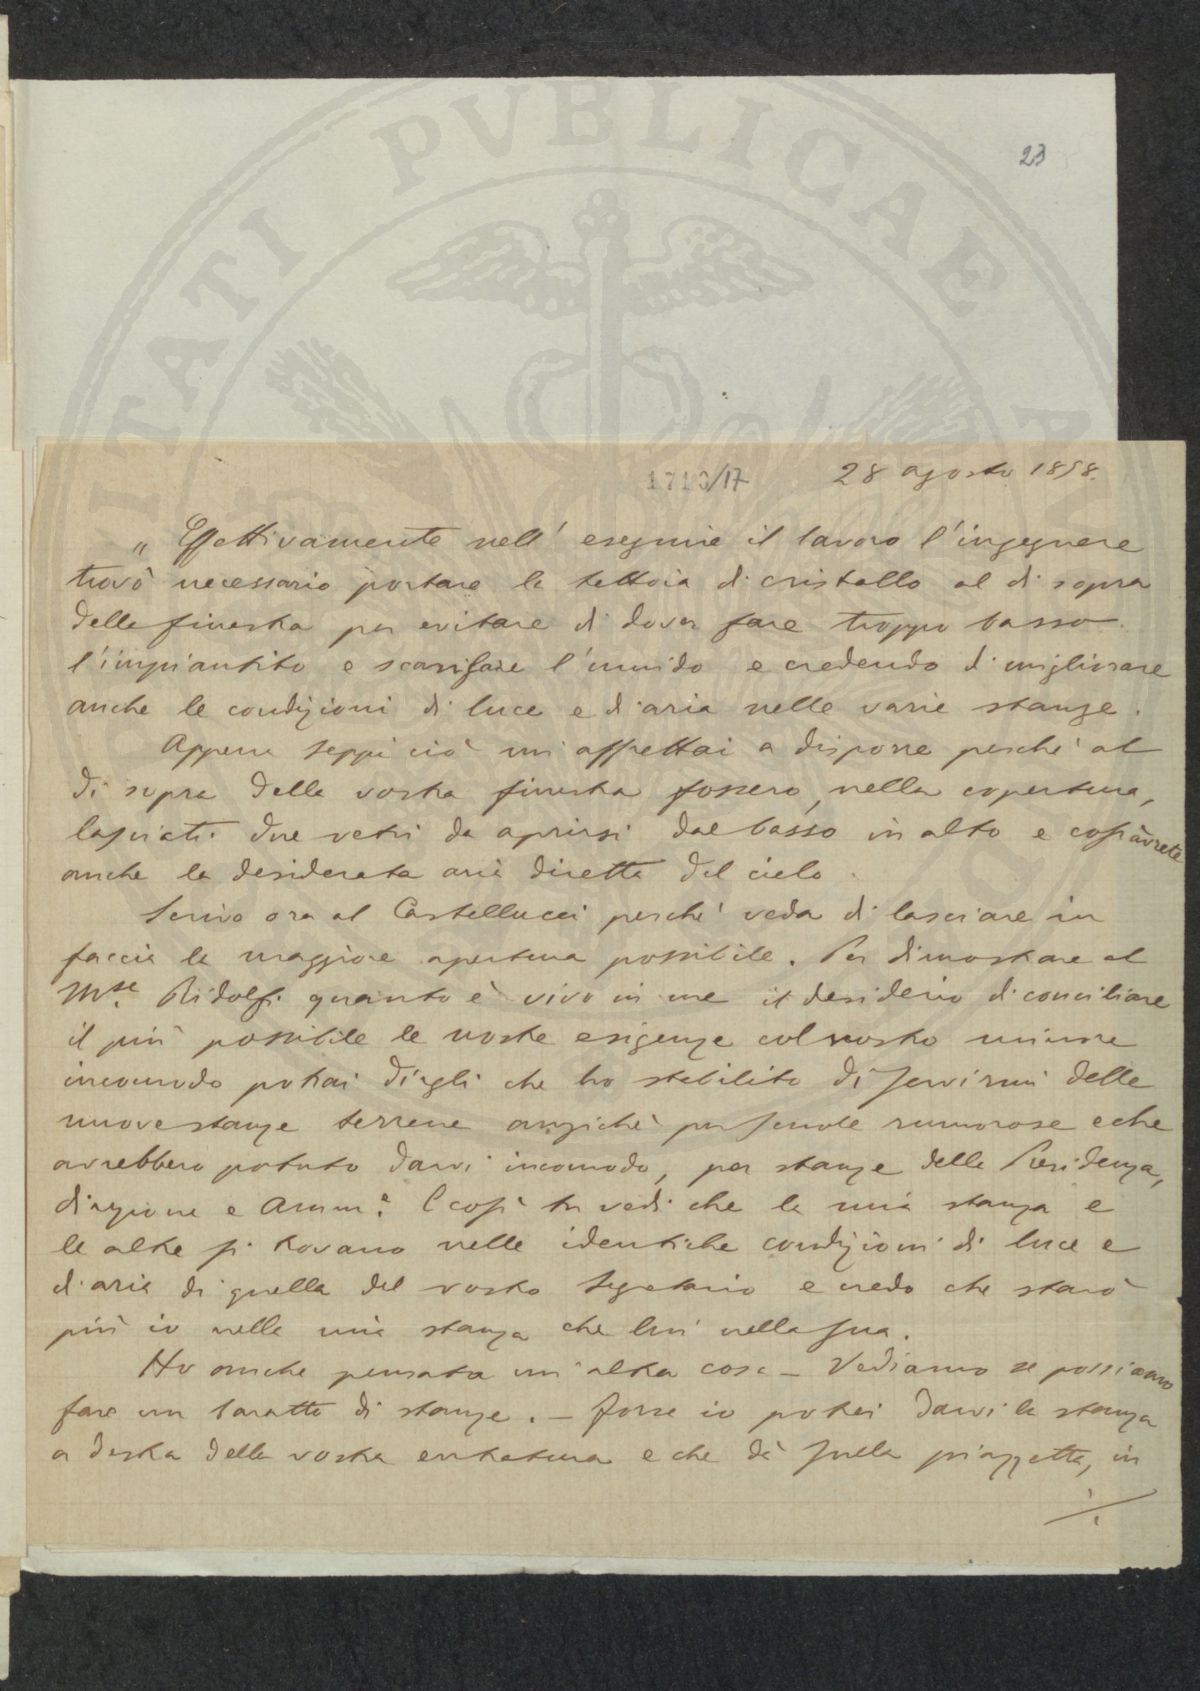 23
1710/17 28 agosto 1898.
„ Effettivamente nell' eseguire il lavoro l'ingegnere
trovò necessario portare la tettoia di cristallo al di sopra
della finestra per evitare di dover fare troppo basso
l'impiantito e scansare l'umido e credendo di migliorare
anche le condizioni di luce e d'aria nelle varie stanze.
Appena seppi ciò mi affrettai a disporre perchè al
di sopra della vostra finestra fossero, nella copertura,
lasciati due vetri da aprirsi dal basso in alto e così avrete
anche la desiderata aria diretta del cielo.
Scrivo ora al Castellucci perchè veda di lasciare in
faccia la maggiore apertura possibile. Per dimostrare al
Mse. Ridolfi quanto è vivo in me il desiderio di conciliare
il più possibile le nostre esigenze col vostro minore
incomodo potrai dirgli che ho stabilito di servirmi delle
nuove stanze terrene anzichè per scuole rumorose e che
avrebbero potuto darvi incomodo, per stanze della Presidenza,
direzione e Amm.e E così tu vedi che la mia stanza e
le altre si trovano nelle identiche condizioni di luce e
d'aria di quella del vostro Segretario e credo che starò
più io nella mia stanza che lui nella sua.
Ho anche pensata un'altra cosa - Vediamo se possiamo
fare un baratto di stanze. - Forse io potrei darvi la stanza
a destra della vostra entratura e che dà sulla piazzetta, in
./.
PVBLICAE